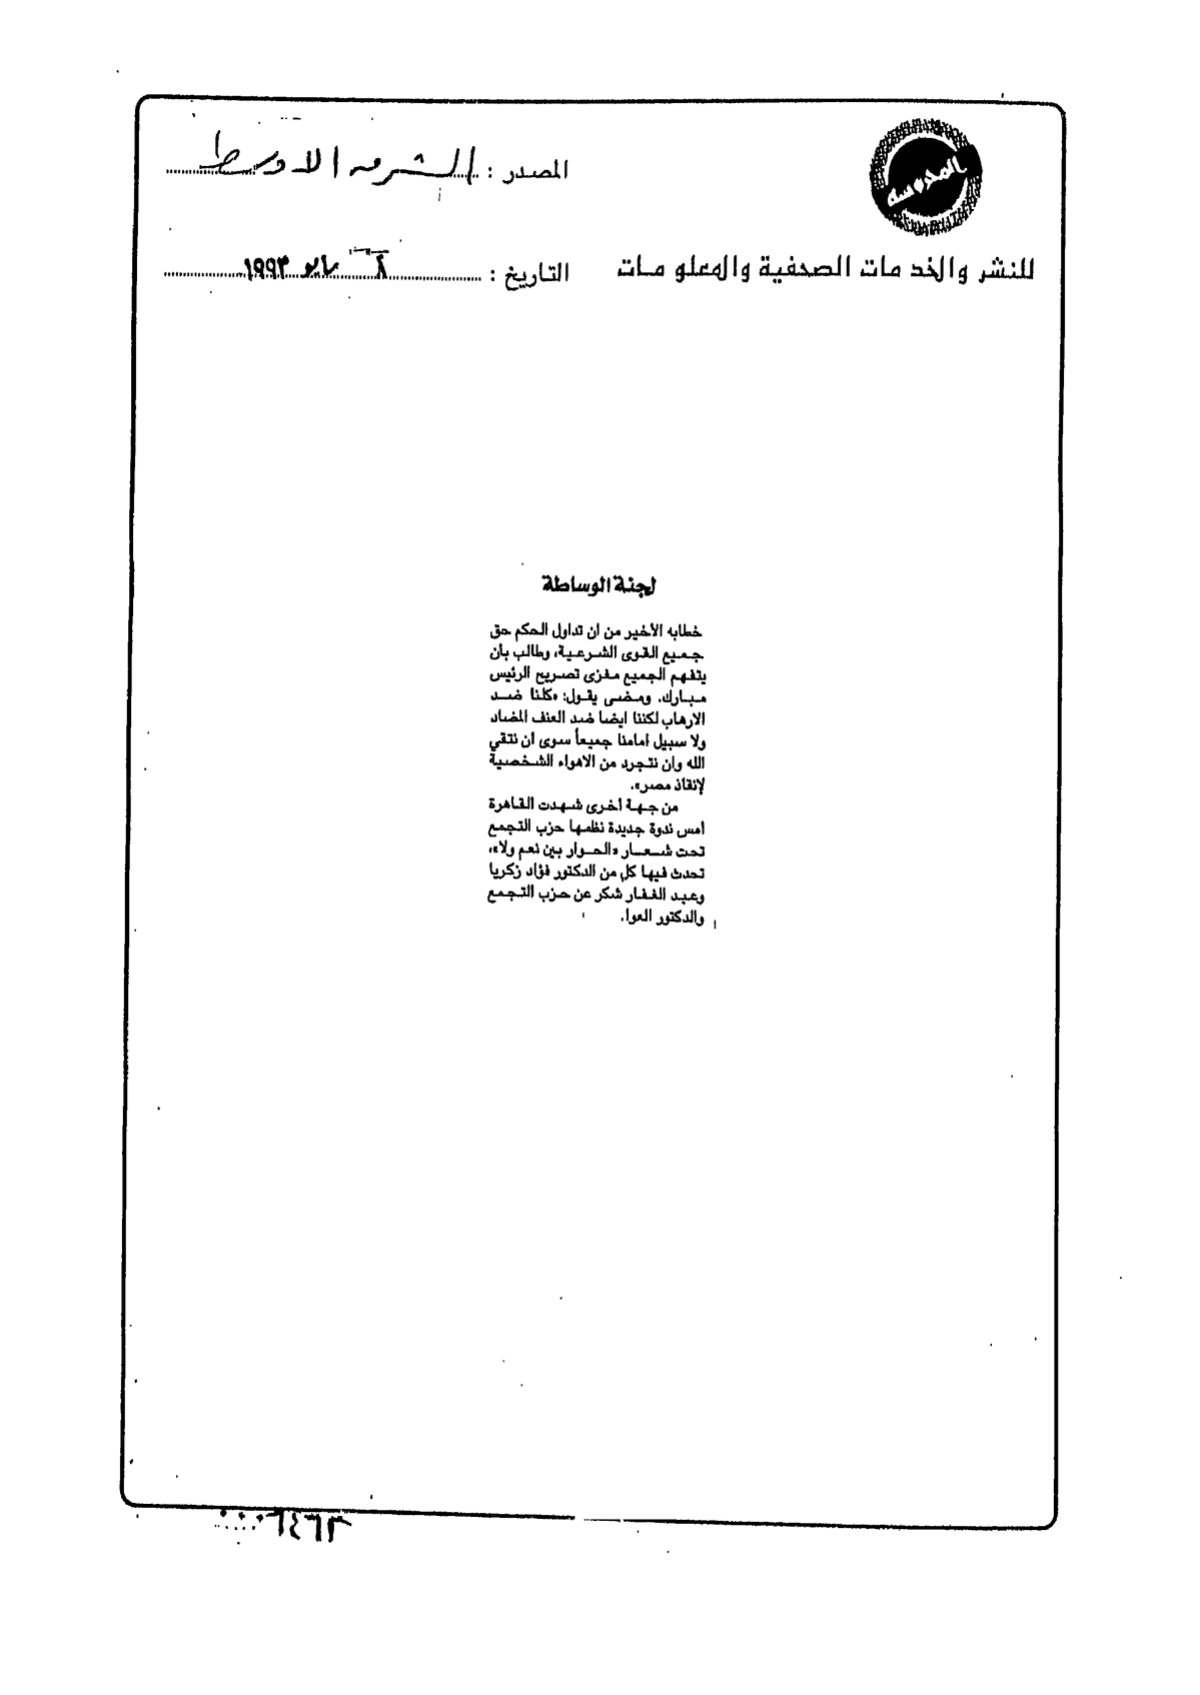 المحروسة
المصدر : الشرق الاوسط
للنشر والخدمات الصحفية والمعلومات
التاريخ : ٨ مايو ١٩٩٣
لجنة الوساطة
خطابه الأخير من ان تداول الحكم حق
جميع القوى الشرعية، وطالب بأن
يتفهم الجميع مغزى تصريح الرئيس
مبارك. ومضى يقول: «كلنا ضد
الارهاب لكننا ايضا ضد العنف المضاد
ولا سبيل امامنا جميعاً سوى ان نتقي
الله وان نتجرد من الاهواء الشخصية
لإنقاذ مصر».
من جهة أخرى شهدت القاهرة
امس ندوة جديدة نظمها حزب التجمع
تحت شعار «الحوار بين نعم ولا»،
تحدث فيها كل من الدكتور فؤاد زكريا
وعبد الغفار شكر عن حزب التجمع
والدكتور العوا.